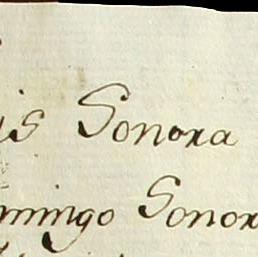 Sonora
mingo Sonor